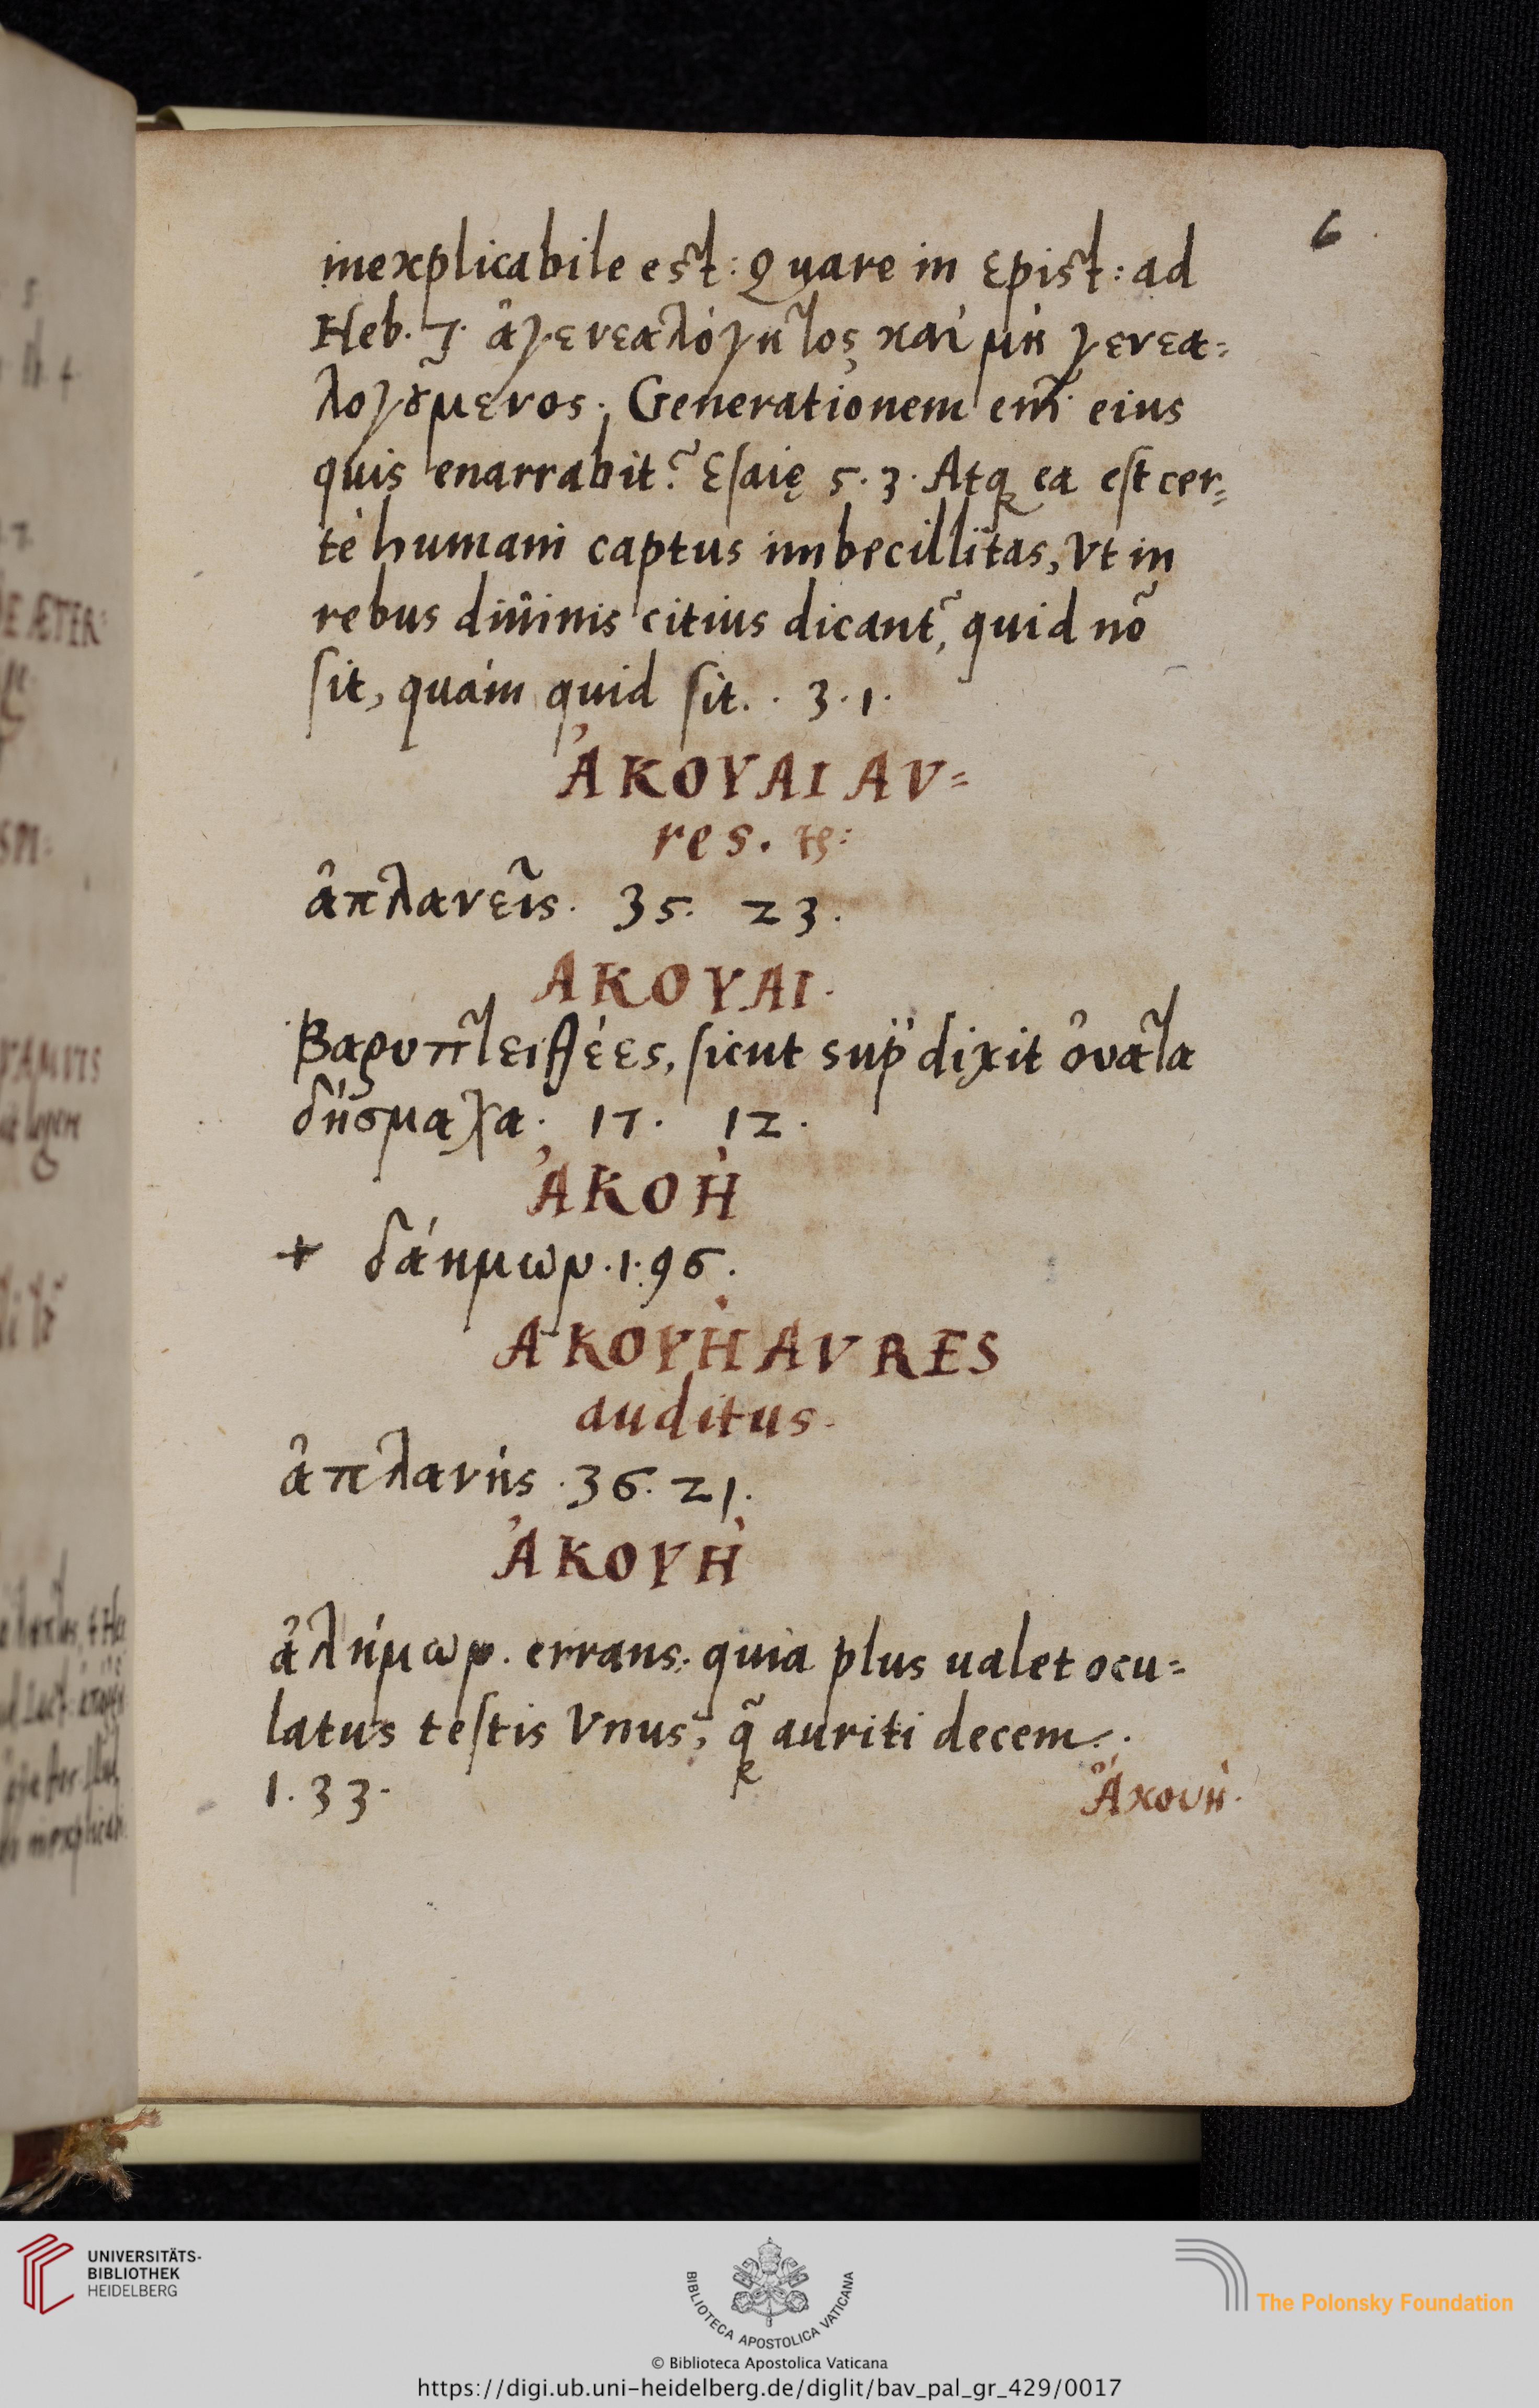 6
inexplicabile est: Quare in Epist: ad
Heb. 7. ἀγενεαλόγητος καί μή γενεα=
λογούμενος. Generationem em̃ eius
quis enarrabit? Esaię 5.3. Atq ea est cer=
tè humani captus imbecillitas, Vt in
rebus diuinis citius dicant̃, quid nõ
sit, quám quid sit. . 3.1.
ἈΚΟΥΑΙ AV=
res.
ἀπλανεῖς. 35. 23.
ΑΚΟΥΑΙ.
βαρυπ sicut sup dixit ὀυατα
17. 12.
ἈΚΟῊ
+ δάημων. 1. 96.
ΑΚΟΥῊ AVRES
auditus.
ἀπλανής. 36. 21.
ἈΚΟΥῊ
ἀλήμων. errans: quia plus ualet ocu=
latus testis Vnus, q̃ auriti decem.
1. 33.
Ἀκουὴ.
UNIVERSITÄTS-
BIBLIOTHEK
HEIDELBERG
BIBLIOTECA APOSTOLICA VATICANA
The Polonsky Foundation
© Biblioteca Apostolica Vaticana
https://digi.ub.uni-heidelberg.de/diglit/bav_pal_gr_429/0017